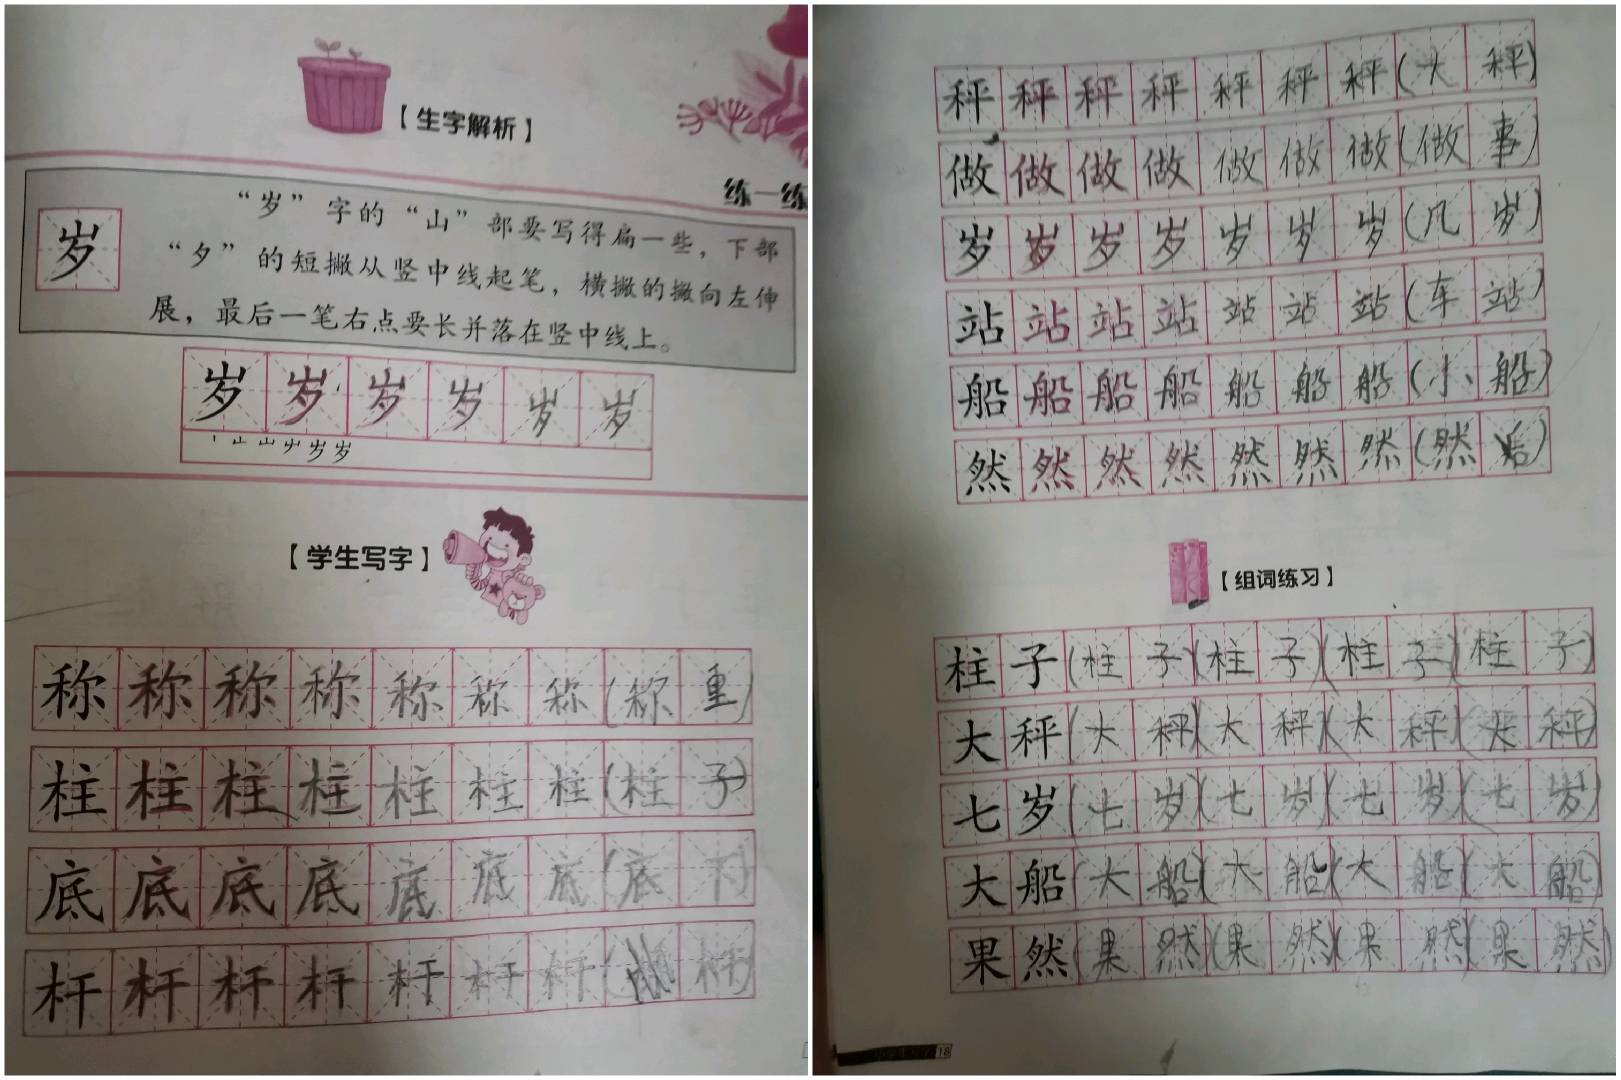 【生字解析】
练一练
岁
“岁”字的“山”部要写得扁一些，下部
“夕”的短撇从竖中线起笔，横撇的撇向左伸
展，最后一笔右点要长并落在竖中线上。
岁岁岁岁岁岁
【学生写字】
称称称称称称称(称重)
柱柱柱柱柱柱柱(柱子)
底底底底底底底(底下)
杆杆杆杆杆杆杆(杆)
秤秤秤秤秤秤秤(大秤)
做做做做做做做(做事)
岁岁岁岁岁岁岁(几岁)
站站站站站站站(车站)
船船船船船船船(小船)
然然然然然然然(然后)
【组词练习】
柱子(柱子)(柱子)(柱子)(柱子)
大秤(大秤)(大秤)(大秤)(大秤)
七岁(七岁)(七岁)(七岁)(七岁)
大船(大船)(大船)(大船)(大船)
果然(果然)(果然)(果然)(果然)
18